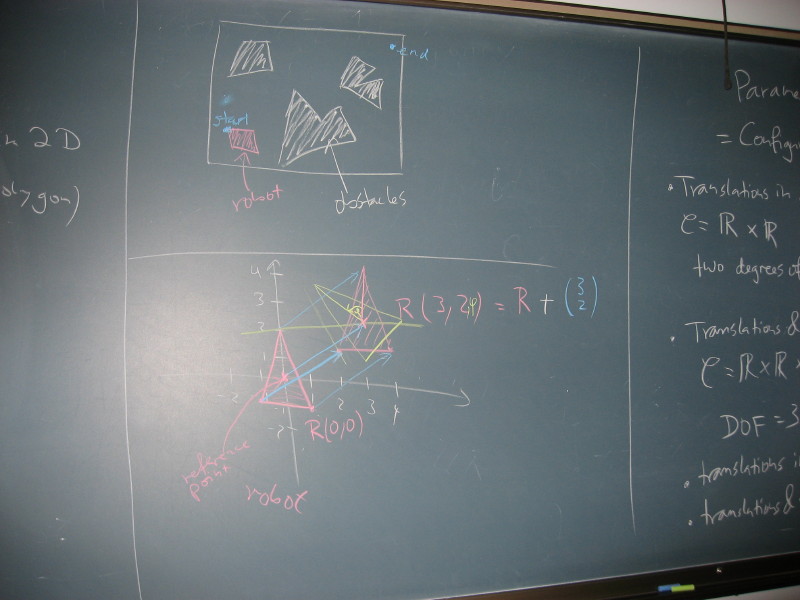 n 2D
olygon)
end
start
robot
obstacles
4
3
2
1
-2
2
3
4
-2
R(3,2,φ) = R + (3 2)
R(0,0)
reference
point
robot
Parame
= Configu
• Translations in
C = R × R
two degrees of
• Translations &
C = R × R ×
DOF = 3
• translations i
• translations &